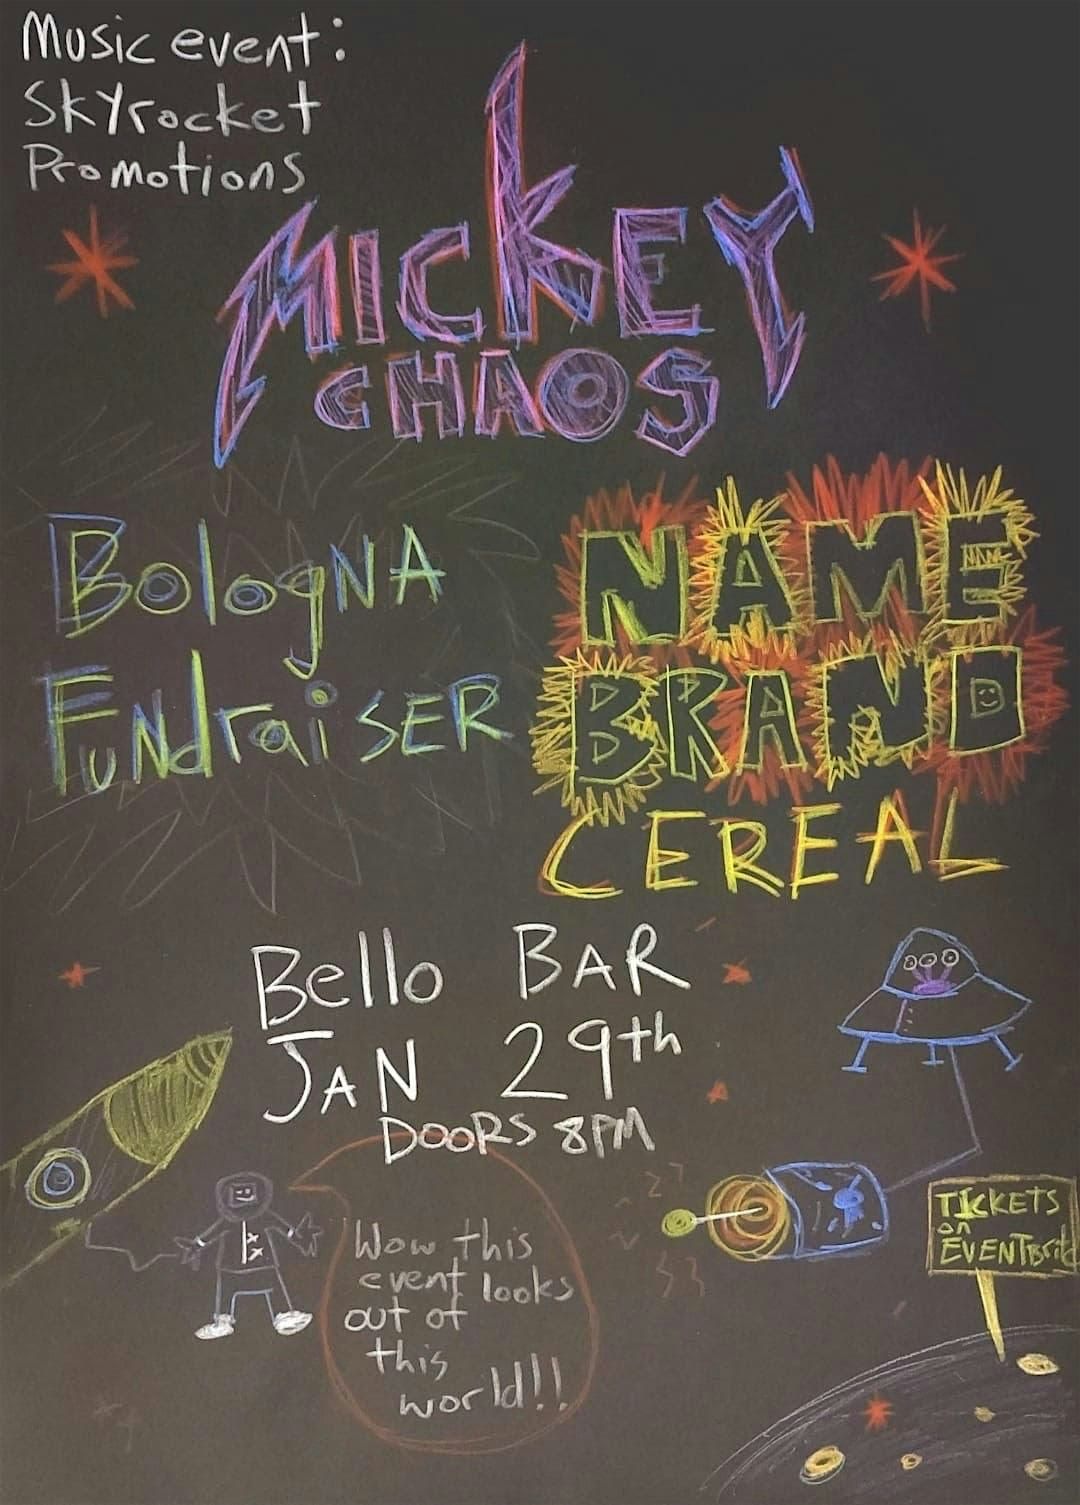 Music event:
Skyrocket
Promotions
MICKEY
CHAOS
BolognA
FuNdraiSER
NAME
BRAND
CEREAL
Bello BAR
JAN 29th
DOORS 8PM
Wow this
event looks
out of
this
world!!
TICKETS
on
EVENTBrite